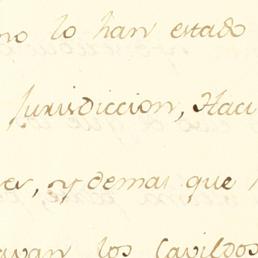 no lo han estado
Jurisdiccion, Haci
es, y demas que
avan los Cavildos